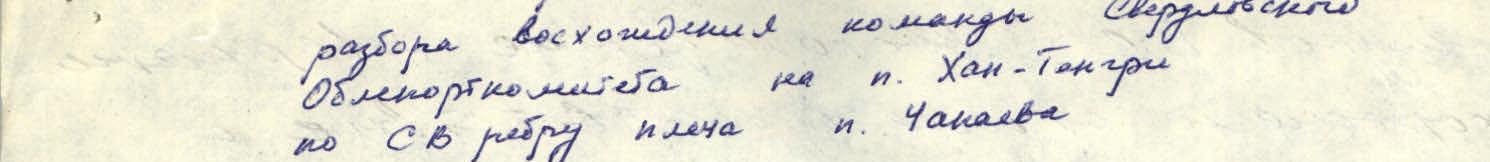 разбора восхождения команды Свердловского
Облспорткомитета на п. Хан-Тенгри
по СВ ребру плеча п. Чапаева